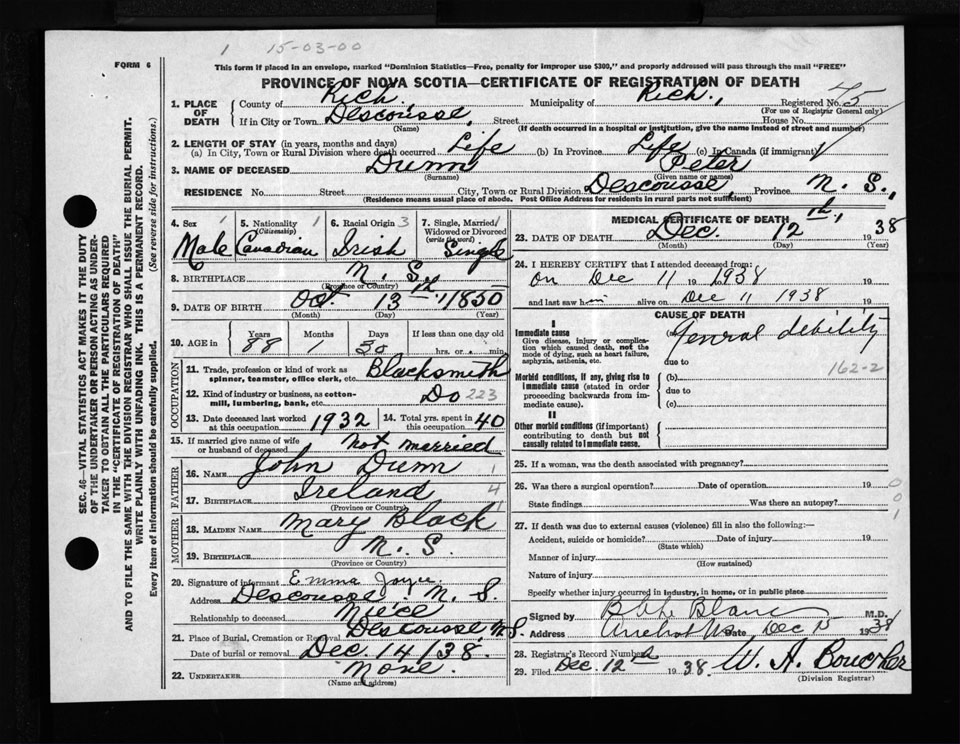 1 15-03-00
FORM 6
This form if placed in an envelope, marked "Dominion Statistics—Free, penalty for improper use $300," and properly addressed will pass through the mail "FREE"
PROVINCE OF NOVA SCOTIA—CERTIFICATE OF REGISTRATION OF DEATH
1. PLACE OF DEATH County of Rich. Municipality of Rich., Registered No. 45
(For use of Registrar General only)
If in City or Town Descousse, Street House No.
(Name) (If death occurred in a hospital or institution, give the name instead of street and number)
2. LENGTH OF STAY (in years, months and days)
(a) In City, Town or Rural Division where death occurred Life (b) In Province Life (c) In Canada (if immigrant)
3. NAME OF DECEASED Dunn Peter
(Surname) (Given name or names)
RESIDENCE No. Street City, Town or Rural Division Descousse, Province N. S.,
(Residence means usual place of abode. Post Office Address for residents in rural parts not sufficient)
4. Sex 1 5. Nationality 1 6. Racial Origin 3 7. Single, Married 1
(Citizenship) Widowed or Divorced
(write the word)
Male Canadian Irish Single
8. BIRTHPLACE N. S.
(Province or Country)
9. DATE OF BIRTH Oct. 13th, 1850
(Month) (Day) (Year)
10. AGE in Years Months Days If less than one day old
88 1 30 hrs. or min.
OCCUPATION
11. Trade, profession or kind of work as Blacksmith
spinner, teamster, office clerk, etc.
12. Kind of industry or business, as cotton- Do 223
mill, lumbering, bank, etc.
13. Date deceased last worked at this occupation 1932 14. Total yrs. spent in this occupation 40
15. If married give name of wife or husband of deceased Not married
FATHER
16. NAME John Dunn 1
17. BIRTHPLACE Ireland 4
(Province or Country) 1
MOTHER
18. MAIDEN NAME Mary Black
19. BIRTHPLACE N. S.
20. Signature of informant Emma Joyce
Address Descousse, N. S.
Relationship to deceased Niece
21. Place of Burial, Cremation or Removal Descousse, N.S.
Date of burial or removal Dec. 14/38.
22. UNDERTAKER None.
(Name and address)
MEDICAL CERTIFICATE OF DEATH
23. DATE OF DEATH Dec. 12th, 1938
(Month) (Day) (Year)
24. I HEREBY CERTIFY that I attended deceased from:
on Dec 11 19 1938 19
and last saw him alive on Dec 11 1938 19
CAUSE OF DEATH
I
Immediate cause (a) General debility
Give disease, injury or complica-
tion which caused death, not the
mode of dying, such as heart failure,
asphyxia, asthenia, etc. due to
162-2
Morbid conditions, if any, giving rise to (b)
immediate cause (stated in order
proceeding backwards from im- due to
mediate cause). (c)
II
Other morbid conditions (if important)
contributing to death but not
causally related to immediate cause.
25. If a woman, was the death associated with pregnancy?
26. Was there a surgical operation? Date of operation 19 0
State findings Was there an autopsy? 0
1
27. If death was due to external causes (violence) fill in also the following:
Accident, suicide or homicide? Date of injury 19
(State which)
Manner of injury
(How sustained)
Nature of injury
Specify whether injury occurred in industry, in home, or in public place
Signed by M.D.
Address Arichat NS Date Dec 15 1938
28. Registrar's Record Number
29. Filed Dec. 12th 1938. W. A. Boucher
(Division Registrar)
SEC. 46—VITAL STATISTICS ACT MAKES IT THE DUTY
OF THE UNDERTAKER OR PERSON ACTING AS UNDER-
TAKER TO OBTAIN ALL THE PARTICULARS REQUIRED
IN THE "CERTIFICATE OF REGISTRATION OF DEATH"
AND TO FILE THE SAME WITH THE DIVISION REGISTRAR WHO SHALL ISSUE THE BURIAL PERMIT.
WRITE PLAINLY WITH UNFADING INK. THIS IS A PERMANENT RECORD.
Every item of information should be carefully supplied. (See reverse side for instructions.)